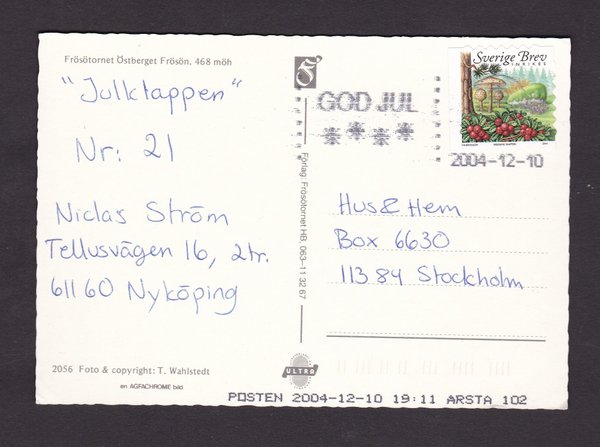 Frösötornet Östberget Frösön. 468 möh
"Julklappen"
Nr: 21
Niclas Ström
Tellusvägen 16, 2tr.
611 60 Nyköping
2056 Foto & copyright: T. Wahlstedt
en AGFACHROME bild
Förlag: Frösötornet HB. 063-11 32 67
ULTRA
GOD JUL
Sverige Brev
INRIKES
2004-12-10
Hus & Hem
Box 6630
113 84 Stockholm
POSTEN 2004-12-10 19:11 ÅRSTA 102